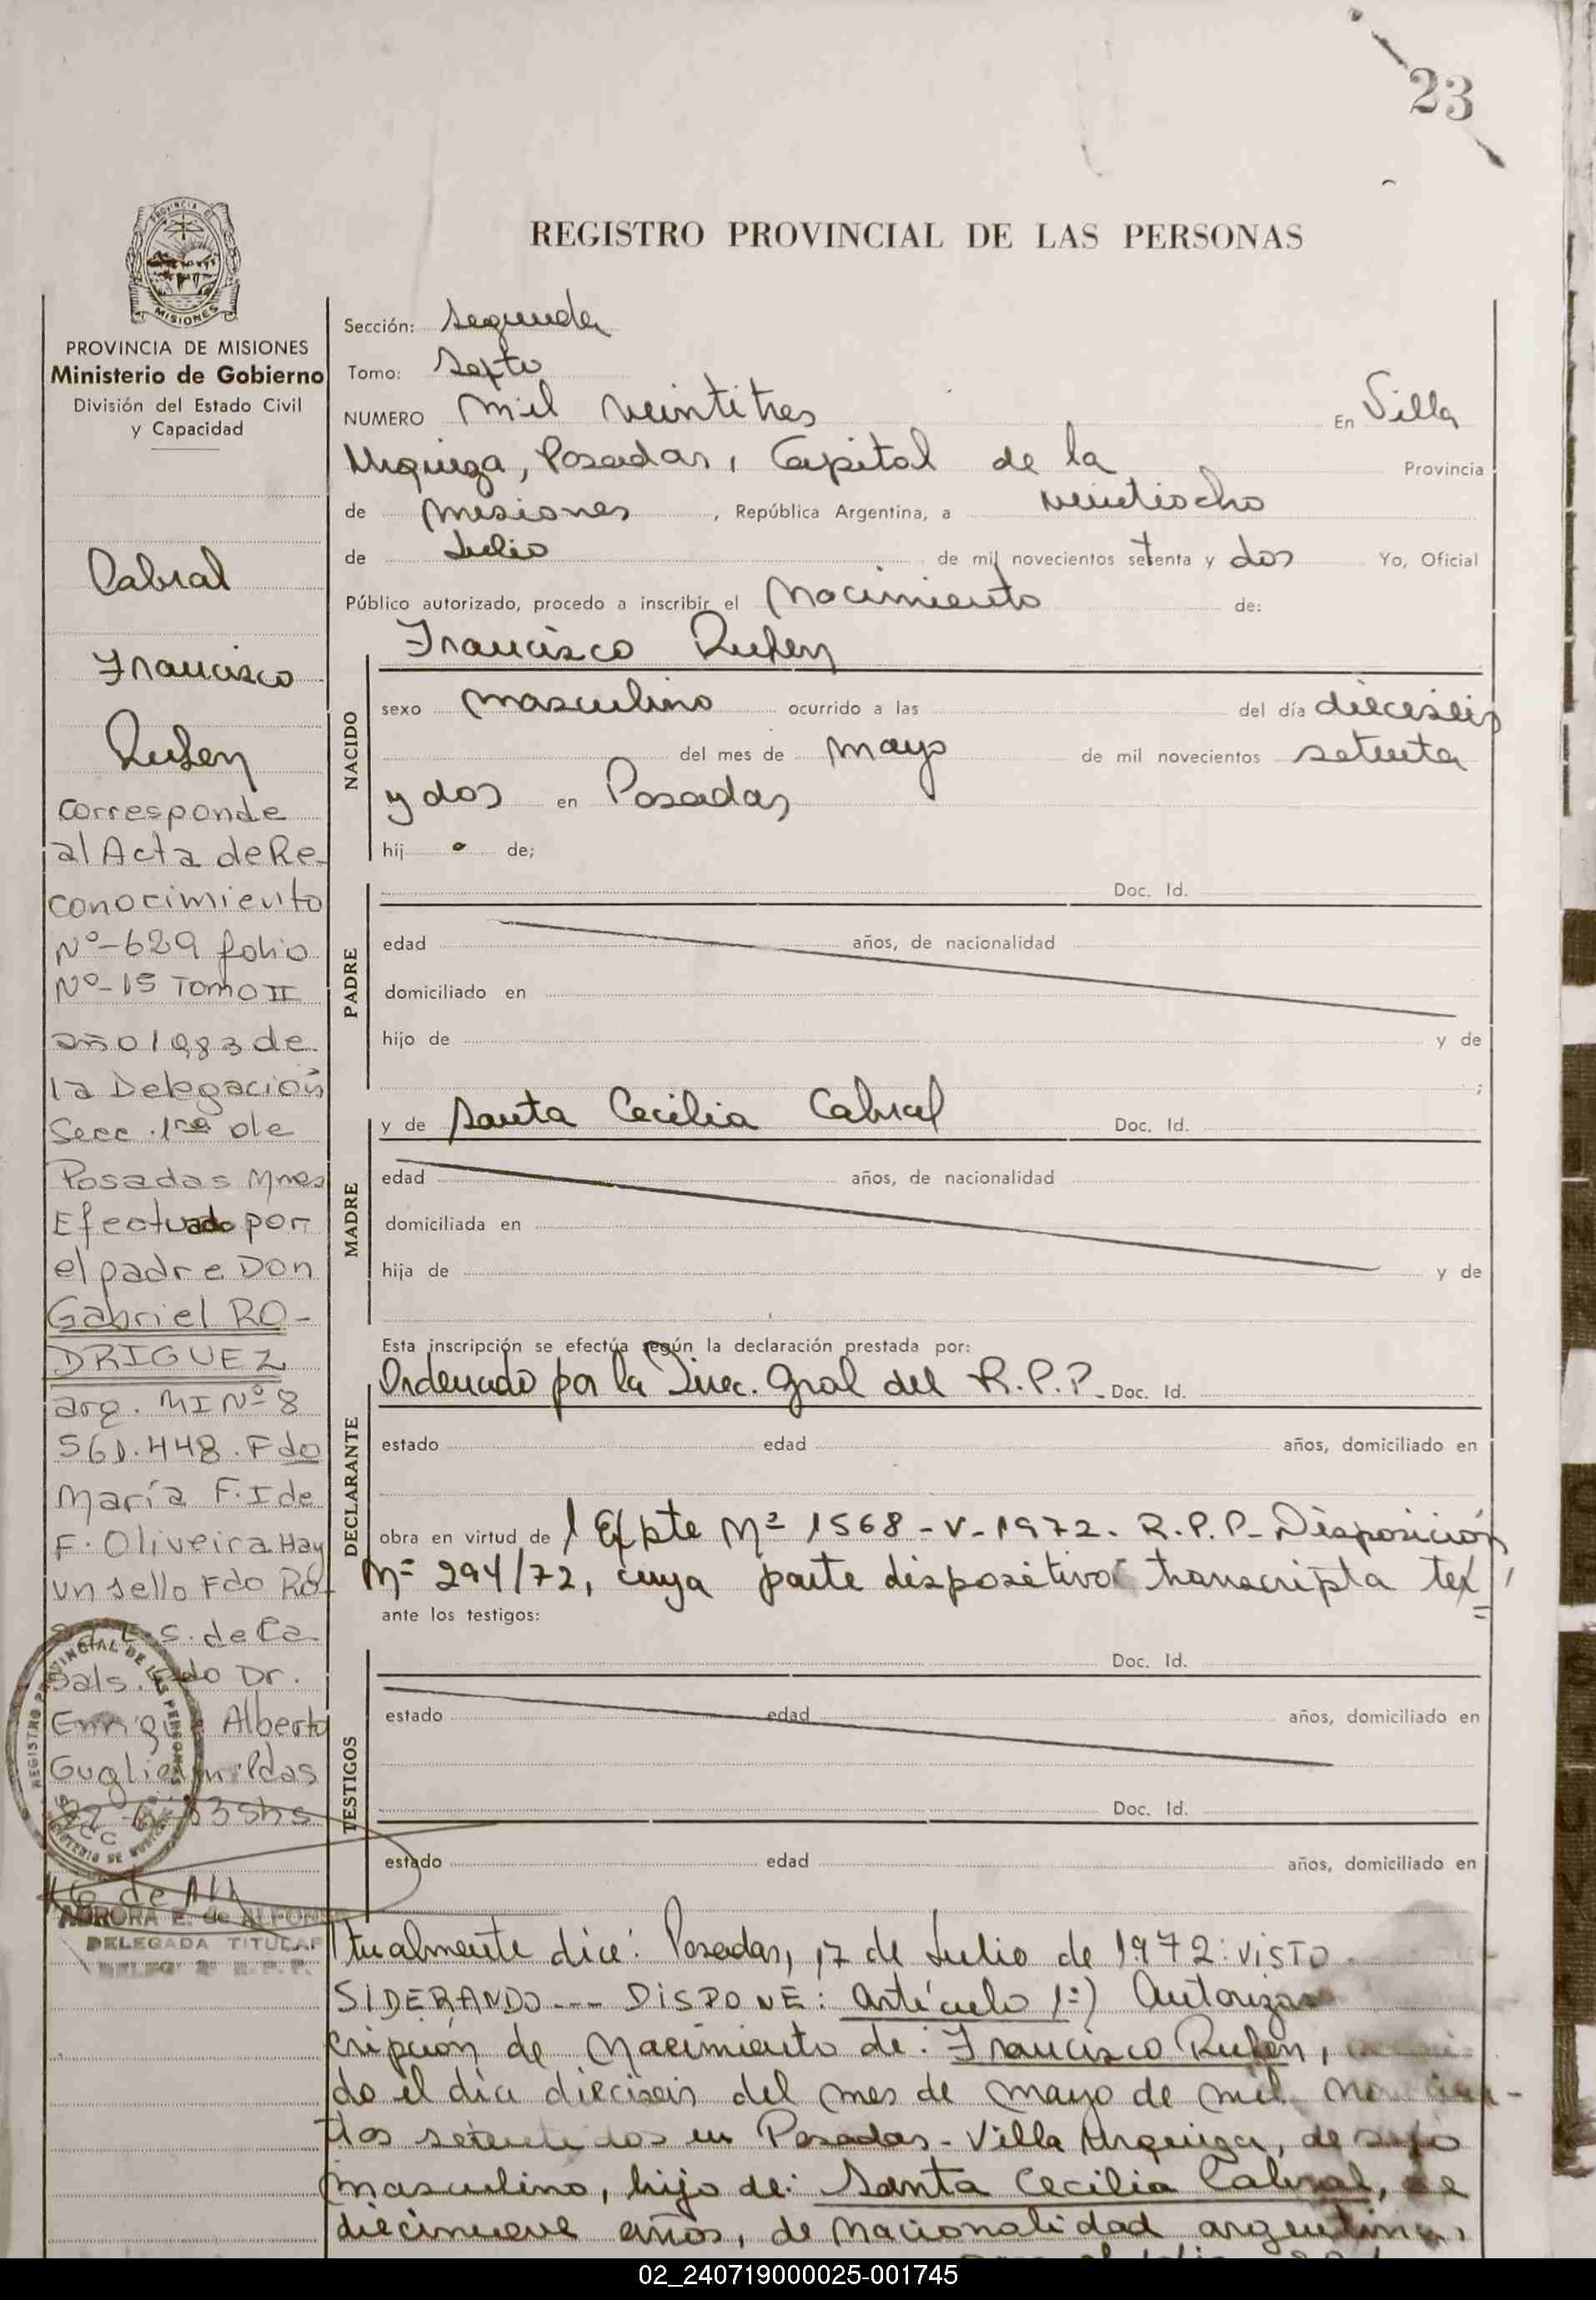 23
REGISTRO PROVINCIAL DE LAS PERSONAS
PROVINCIA DE
MISIONES
PROVINCIA DE MISIONES
Ministerio de Gobierno
División del Estado Civil
y Capacidad
Cabral
Francisco
Ruben
corresponde
al Acta de Re-
conocimiento
Nº-629 folio
Nº-15 Tomo II
año 1983 de
la Delegación
Secc. 1ra de
Posadas Mnes
Efectuado por
el padre Don
Gabriel RO-
DRIGUEZ
arg. MI Nº 8
561.448. Fdo
María F. I de
F. Oliveira Hay
un sello Fdo Ro-
S. de Ca
sals. Fdo Dr.
Enrique Alberto
Pdas
REGISTRO PROVINCIAL DE LAS PERSONAS
AURORA E. de ALFONSO
DELEGADA TITULAR
R. P. P.
Sección: Segunda
Tomo: Sexto
NUMERO mil veintitres En Villa
Urquiza, Posadas, Capital de la Provincia
de Misiones, República Argentina, a veintiocho
de Julio de mil novecientos setenta y dos Yo, Oficial
Público autorizado, procedo a inscribir el Nacimiento de:
Francisco Ruben
NACIDO
sexo masculino ocurrido a las del día dieciséis
del mes de mayo de mil novecientos setenta
y dos en Posadas
hij o de;
PADRE
Doc. Id.
edad años, de nacionalidad
domiciliado en
hijo de y de
;
MADRE
y de Santa Cecilia Cabral Doc. Id.
edad años, de nacionalidad
domiciliada en
hija de y de
Esta inscripción se efectúa según la declaración prestada por:
DECLARANTE
Ordenado por la Direc. Gral del R.P.P. Doc. Id.
estado edad años, domiciliado en
obra en virtud de l Expte Nº 1568-V-1972. R.P.P- Disposición
Nº 294/72, cuya parte dispositiva transcripta tex
ante los testigos:
TESTIGOS
Doc. Id.
estado edad años, domiciliado en
Doc. Id.
estado edad años, domiciliado en
tualmente dice: Posadas, 17 de Julio de 1972: VISTO
SIDERANDO--- DISPONE: Artículo 1º) Autorizar
cripción de Nacimiento de: Francisco Ruben,
do el día dieciseis del mes de mayo de mil
tos setenta dos en Posadas - Villa Urquiza, de sexo
masculino, hijo de: Santa Cecilia Cabral, de
diecinueve años, de nacionalidad argentina,
02_240719000025-001745